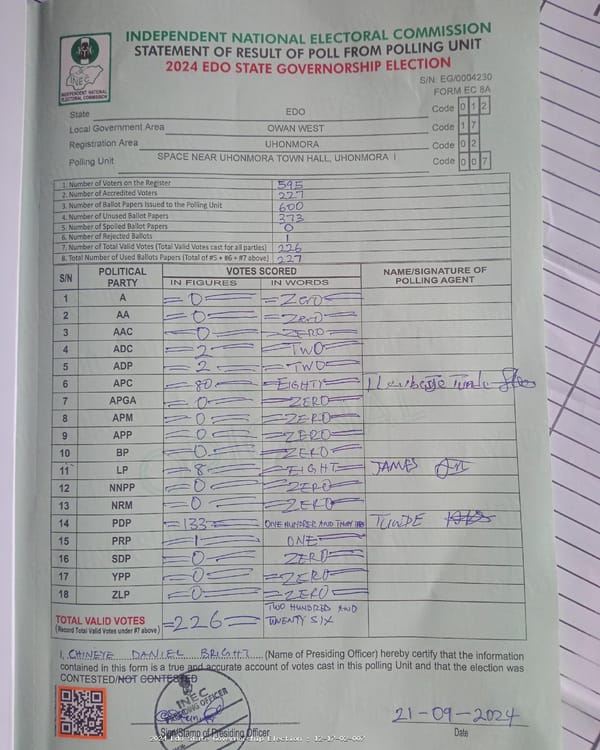 INDEPENDENT NATIONAL ELECTORAL COMMISSION
STATEMENT OF RESULT OF POLL FROM POLLING UNIT
2024 EDO STATE GOVERNORSHIP ELECTION
INEC
INDEPENDENT NATIONAL
ELECTORAL COMMISSION
S/N: EG/0004230
FORM EC 8A
State EDO Code 0 1 2
Local Government Area OWAN WEST Code 1 7
Registration Area UHONMORA Code 0 2
Polling Unit SPACE NEAR UHONMORA TOWN HALL, UHONMORA I Code 0 0 7
1. Number of Voters on the Register 595
2. Number of Accredited Voters 227
3. Number of Ballot Papers Issued to the Polling Unit 600
4. Number of Unused Ballot Papers 373
5. Number of Spoiled Ballot Papers 0
6. Number of Rejected Ballots 1
7. Number of Total Valid Votes (Total Valid Votes cast for all parties) 226
8. Total Number of Used Ballots Papers (Total of #5 + #6 + #7 above) 227
S/N POLITICAL PARTY VOTES SCORED NAME/SIGNATURE OF POLLING AGENT
IN FIGURES IN WORDS
1 A =0= =ZERO=
2 AA =0= =ZERO=
3 AAC =0= =ZERO=
4 ADC =2= =TWO=
5 ADP =2= =TWO=
6 APC =80= =EIGHTY=
7 APGA =0= =ZERO=
8 APM =0= =ZERO=
9 APP =0= =ZERO=
10 BP =0= =ZERO=
11 LP =8= =EIGHT= JAMES
12 NNPP =0= =ZERO=
13 NRM =0= =ZERO=
14 PDP =133= ONE HUNDRED AND THIRTY TUNDE
15 PRP =1= ONE=
16 SDP =0= ZERO=
17 YPP =0= =ZERO=
18 ZLP =0= =ZERO=
TOTAL VALID VOTES =226= TWO HUNDRED AND
(Record Total Valid Votes under #7 above) TWENTY SIX
I, CHINEYE DANIEL BRIGHT (Name of Presiding Officer) hereby certify that the information
contained in this form is a true and accurate account of votes cast in this polling Unit and that the election was
CONTESTED/NOT CONTESTED
INEC
PRESIDING OFFICER
21-09-2024
Sign/Stamp of Presiding Officer Date
2024 Edo State Governorship Election - 12-17-02-007